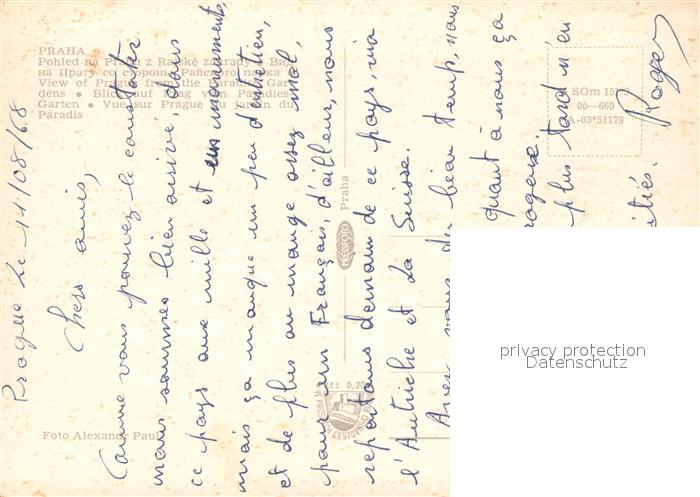 PRAHA
Pohled na Prahu z Rajské zahrady • Вид
на Прагу со стороны Райского парка •
View of Prague from the Paradise Gar-
dens • Blick auf Prag vom Paradies-
Garten • Vue sur Prague du jardin du
Paradis
Foto Alexandr Paul
PRESSFOTO
Praha
Kčs 0,20
SOm
00—669
A-03*51179
Prague le 11/08/68
Chers amis,
Comme vous pouvez le constater
nous sommes bien arrivé, dans
ce pays aux mille et un monuments,
mais ça manque un peu d'entretien,
et de plus on mange assez mal,
pour un Français, d'ailleurs, nous
repartons demain de ce pays, via
l'Autriche et la Suisse.
Avez vous du beau temp, nous
quant à nous ça
plus tard n'en
itiés.
Roger
privacy protection
Datenschutz